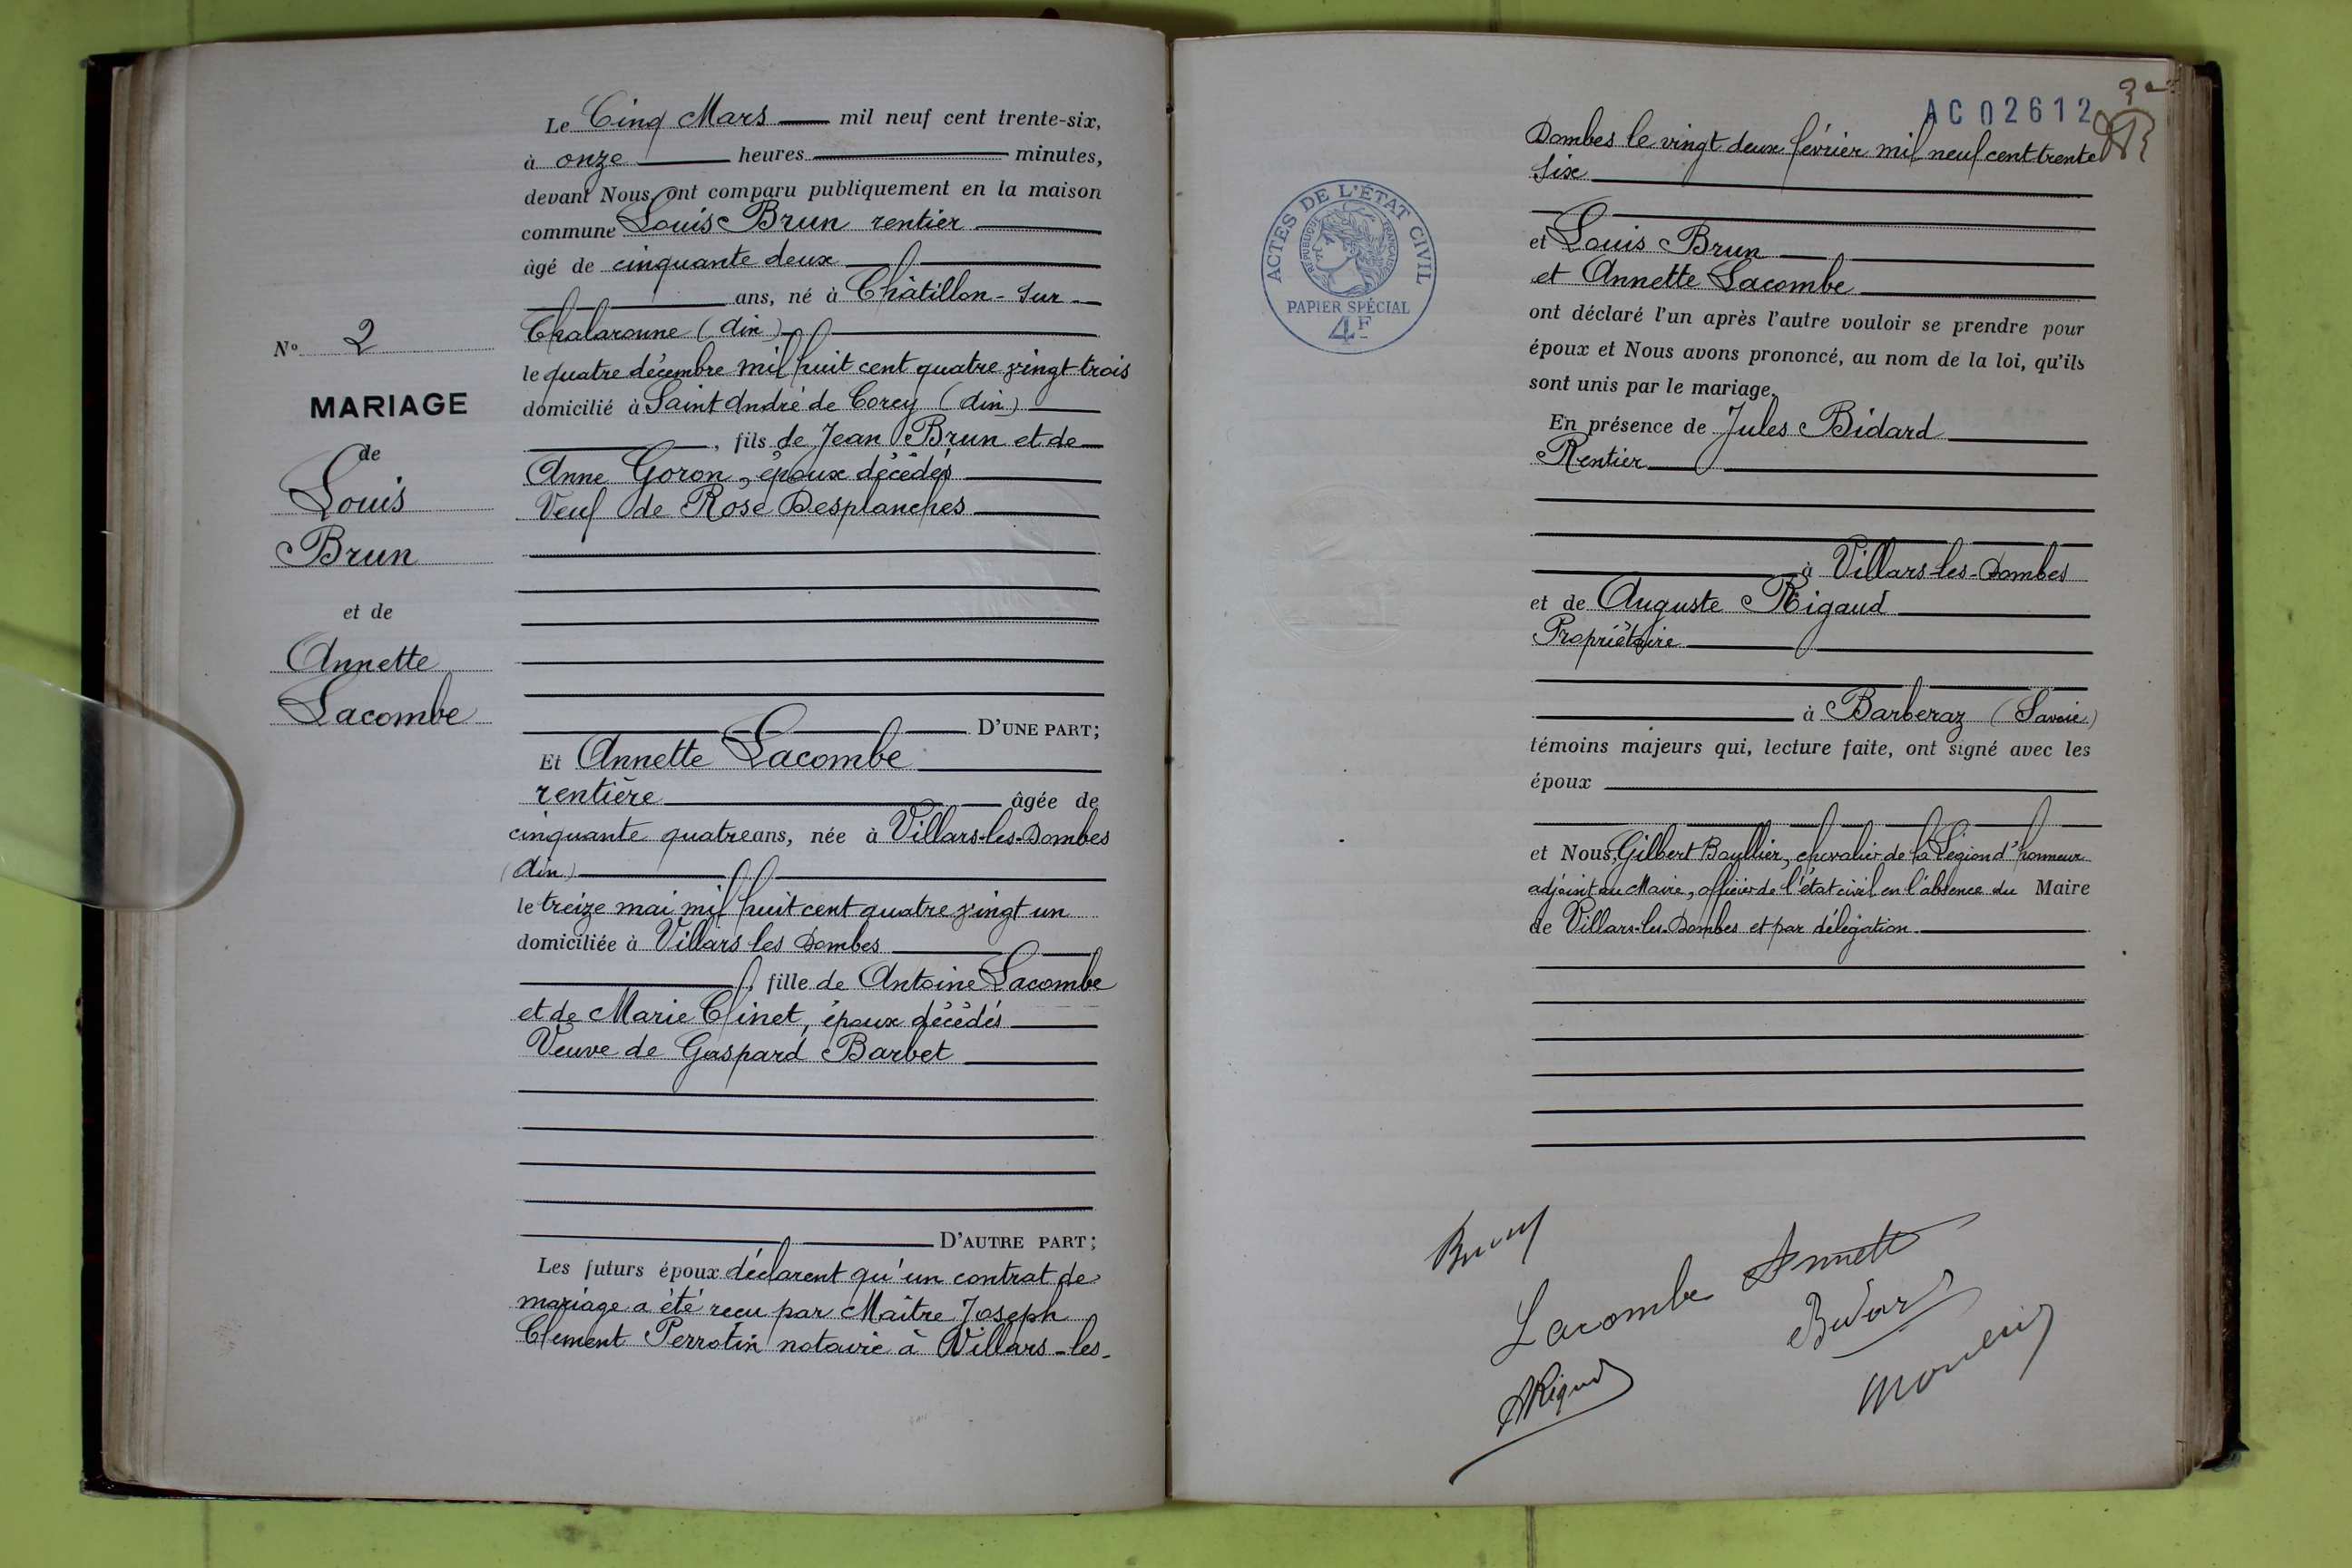 N° 2
MARIAGE
de
Louis
Brun
et de
Annette
Lacombe
Le Cinq Mars mil neuf cent trente-six,
à onze heures minutes,
devant Nous, ont comparu publiquement en la maison
commune Louis Brun rentier
âgé de cinquante deux
ans, né à Châtillon-sur-
Chalaronne (Ain)
le quatre décembre mil huit cent quatre vingt trois
domicilié à Saint André de Corcy (Ain)
, fils de Jean Brun et de
Anne Goron, époux décédés
Veuf de Rose Desplanches
D'UNE PART;
Et Annette Lacombe
rentière âgée de
cinquante quatre ans, née à Villars-les-Dombes
(Ain)
le treize mai mil huit cent quatre vingt un
domiciliée à Villars les Dombes
, fille de Antoine Lacombe
et de Marie Clinet, époux décédés
Veuve de Gaspard Barbet
D'AUTRE PART;
Les futurs époux déclarent qu'un contrat de
mariage a été reçu par Maître Joseph
Clément Perrotin notaire à Villars-les-
AC 02612
ACTES DE L'ÉTAT CIVIL
RÉPUBLIQUE FRANÇAISE
PAPIER SPÉCIAL
4F
Dombes le vingt deux février mil neuf cent trente
six
et Louis Brun
et Annette Lacombe
ont déclaré l'un après l'autre vouloir se prendre pour
époux et Nous avons prononcé, au nom de la loi, qu'ils
sont unis par le mariage.
En présence de Jules Bidard
Rentier
à Villars-les-Dombes
et de Auguste Rigaud
Propriétaire
à Barberaz (Savoie)
témoins majeurs qui, lecture faite, ont signé avec les
époux
et Nous, Gilbert Boullier, chevalier de la Légion d'honneur
adjoint au Maire, officier de l'état civil en l'absence du Maire
de Villars-les-Dombes et par délégation
Brun
Lacombe Annett
Bidard
ARigaud